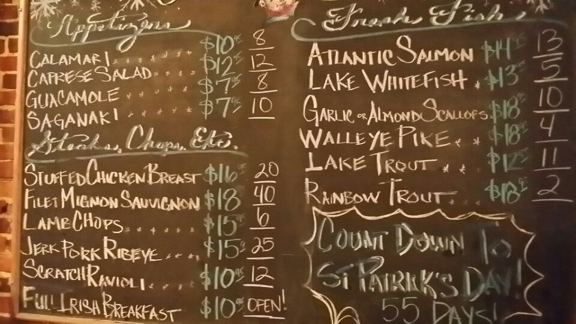 Appetizers
CALAMARI $10 8
CAPRESE SALAD $12 12
GUACAMOLE $7 8
SAGANAKI $7 10
Steaks, Chops, Etc.
STUFFED CHICKEN BREAST $16 20
FILET MIGNON SAUVIGNON $18 40
LAMB CHOPS $15 6
JERK PORK RIBEYE $15 25
SCRATCH RAVIOLI $10 12
FULL IRISH BREAKFAST $10 OPEN!
Fresh Fish
ATLANTIC SALMON 13
LAKE WHITEFISH $13 5
GARLIC OR ALMOND SCALLOPS $18 10
WALLEYE PIKE $18 4
LAKE TROUT 11
RAINBOW TROUT 2
COUNT DOWN TO
ST PATRICK'S DAY!
55 DAYS!